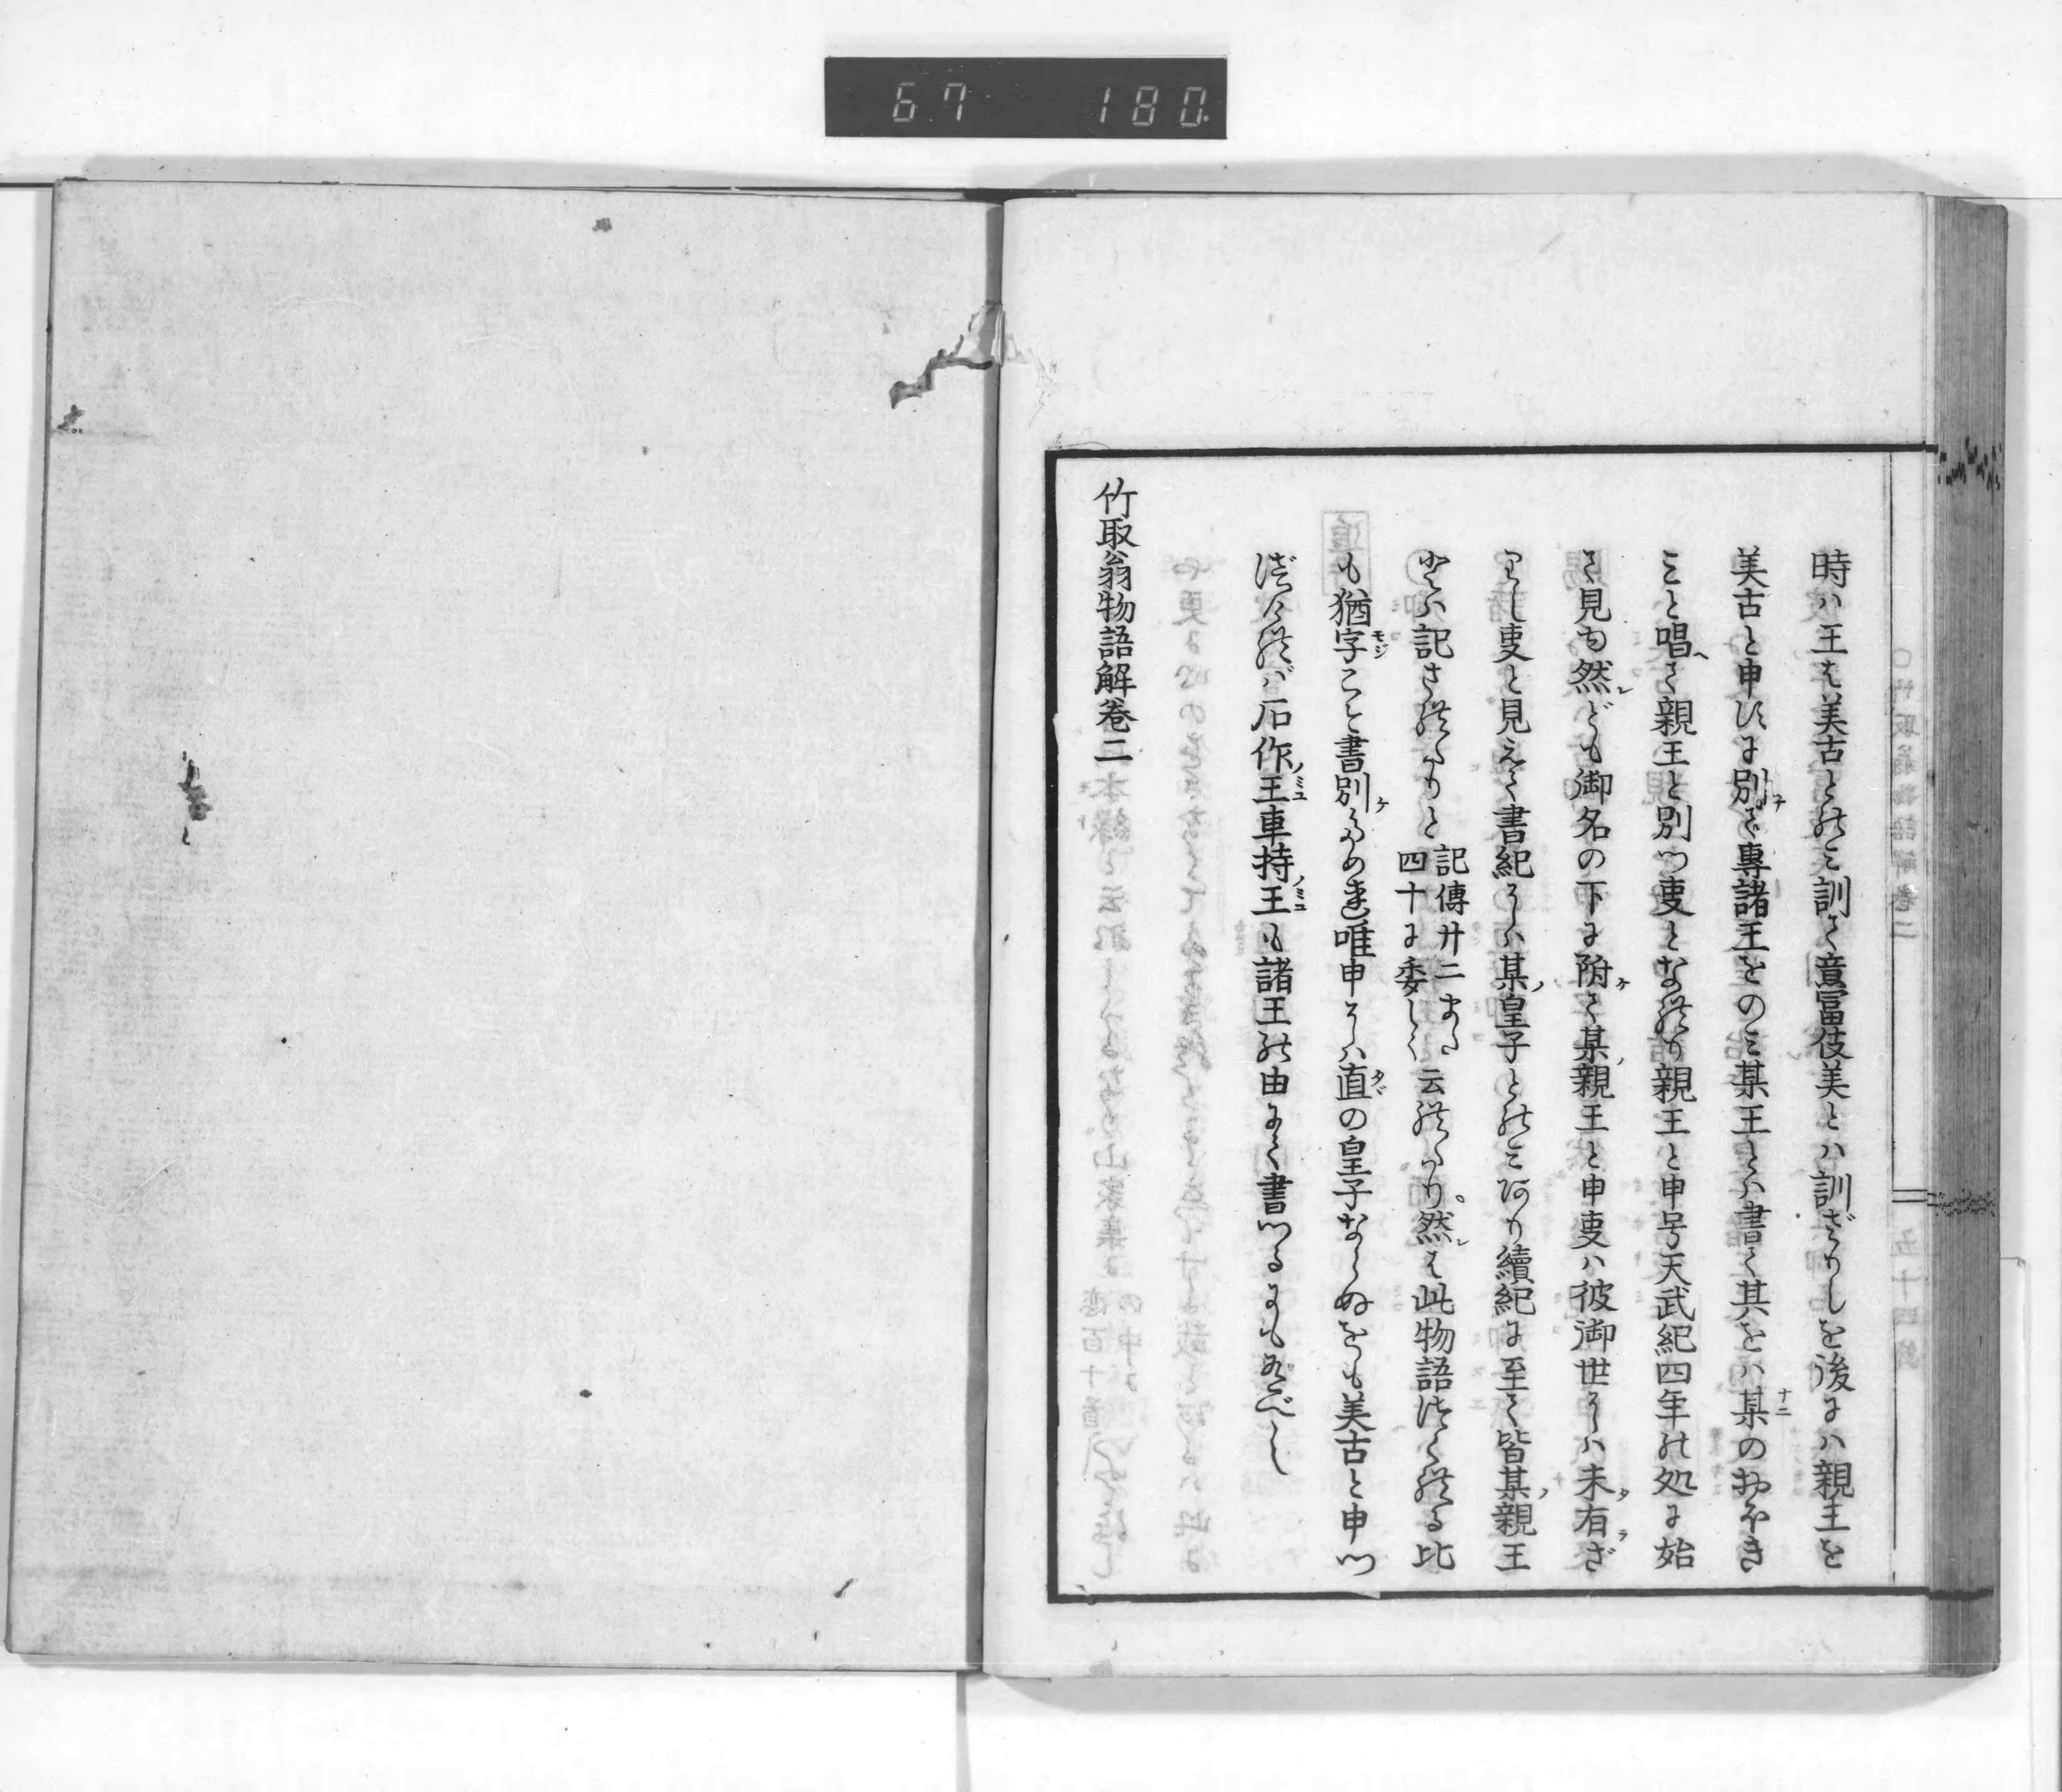 67 180
時ハ王を美古とのミ訓て意富伎美とハ訓ざりしを後にハ親王を
美古と申すに別て專諸王をのミ某王とハ書く其をハ某のおほき
ミと唱へて親王と別つ事となれり親王と申号天武紀四年の処に始
て見ゆ然どもも御名の下に附て某親王と申事ハ彼御世にハ未有ざ
りし事と見えて書紀にハ某皇子とのミあり續紀に至て皆某親王
とハ記されたりと記傳廿二また四十に委しく云れたり。然を此物語つくれる比
も猶字こと書別るめれ唯申すにハ直の皇子ならぬをも美古と申つ
づくれバ石作王車持王も諸王の由にて書つるにも有べし
竹取翁物語解卷二